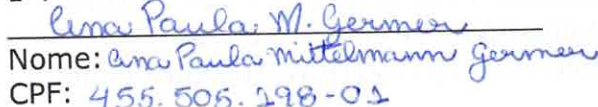 Ana Paula M. Germer
Nome: Ana Paula Mittelmann Germer
CPF: 455.505.298-01